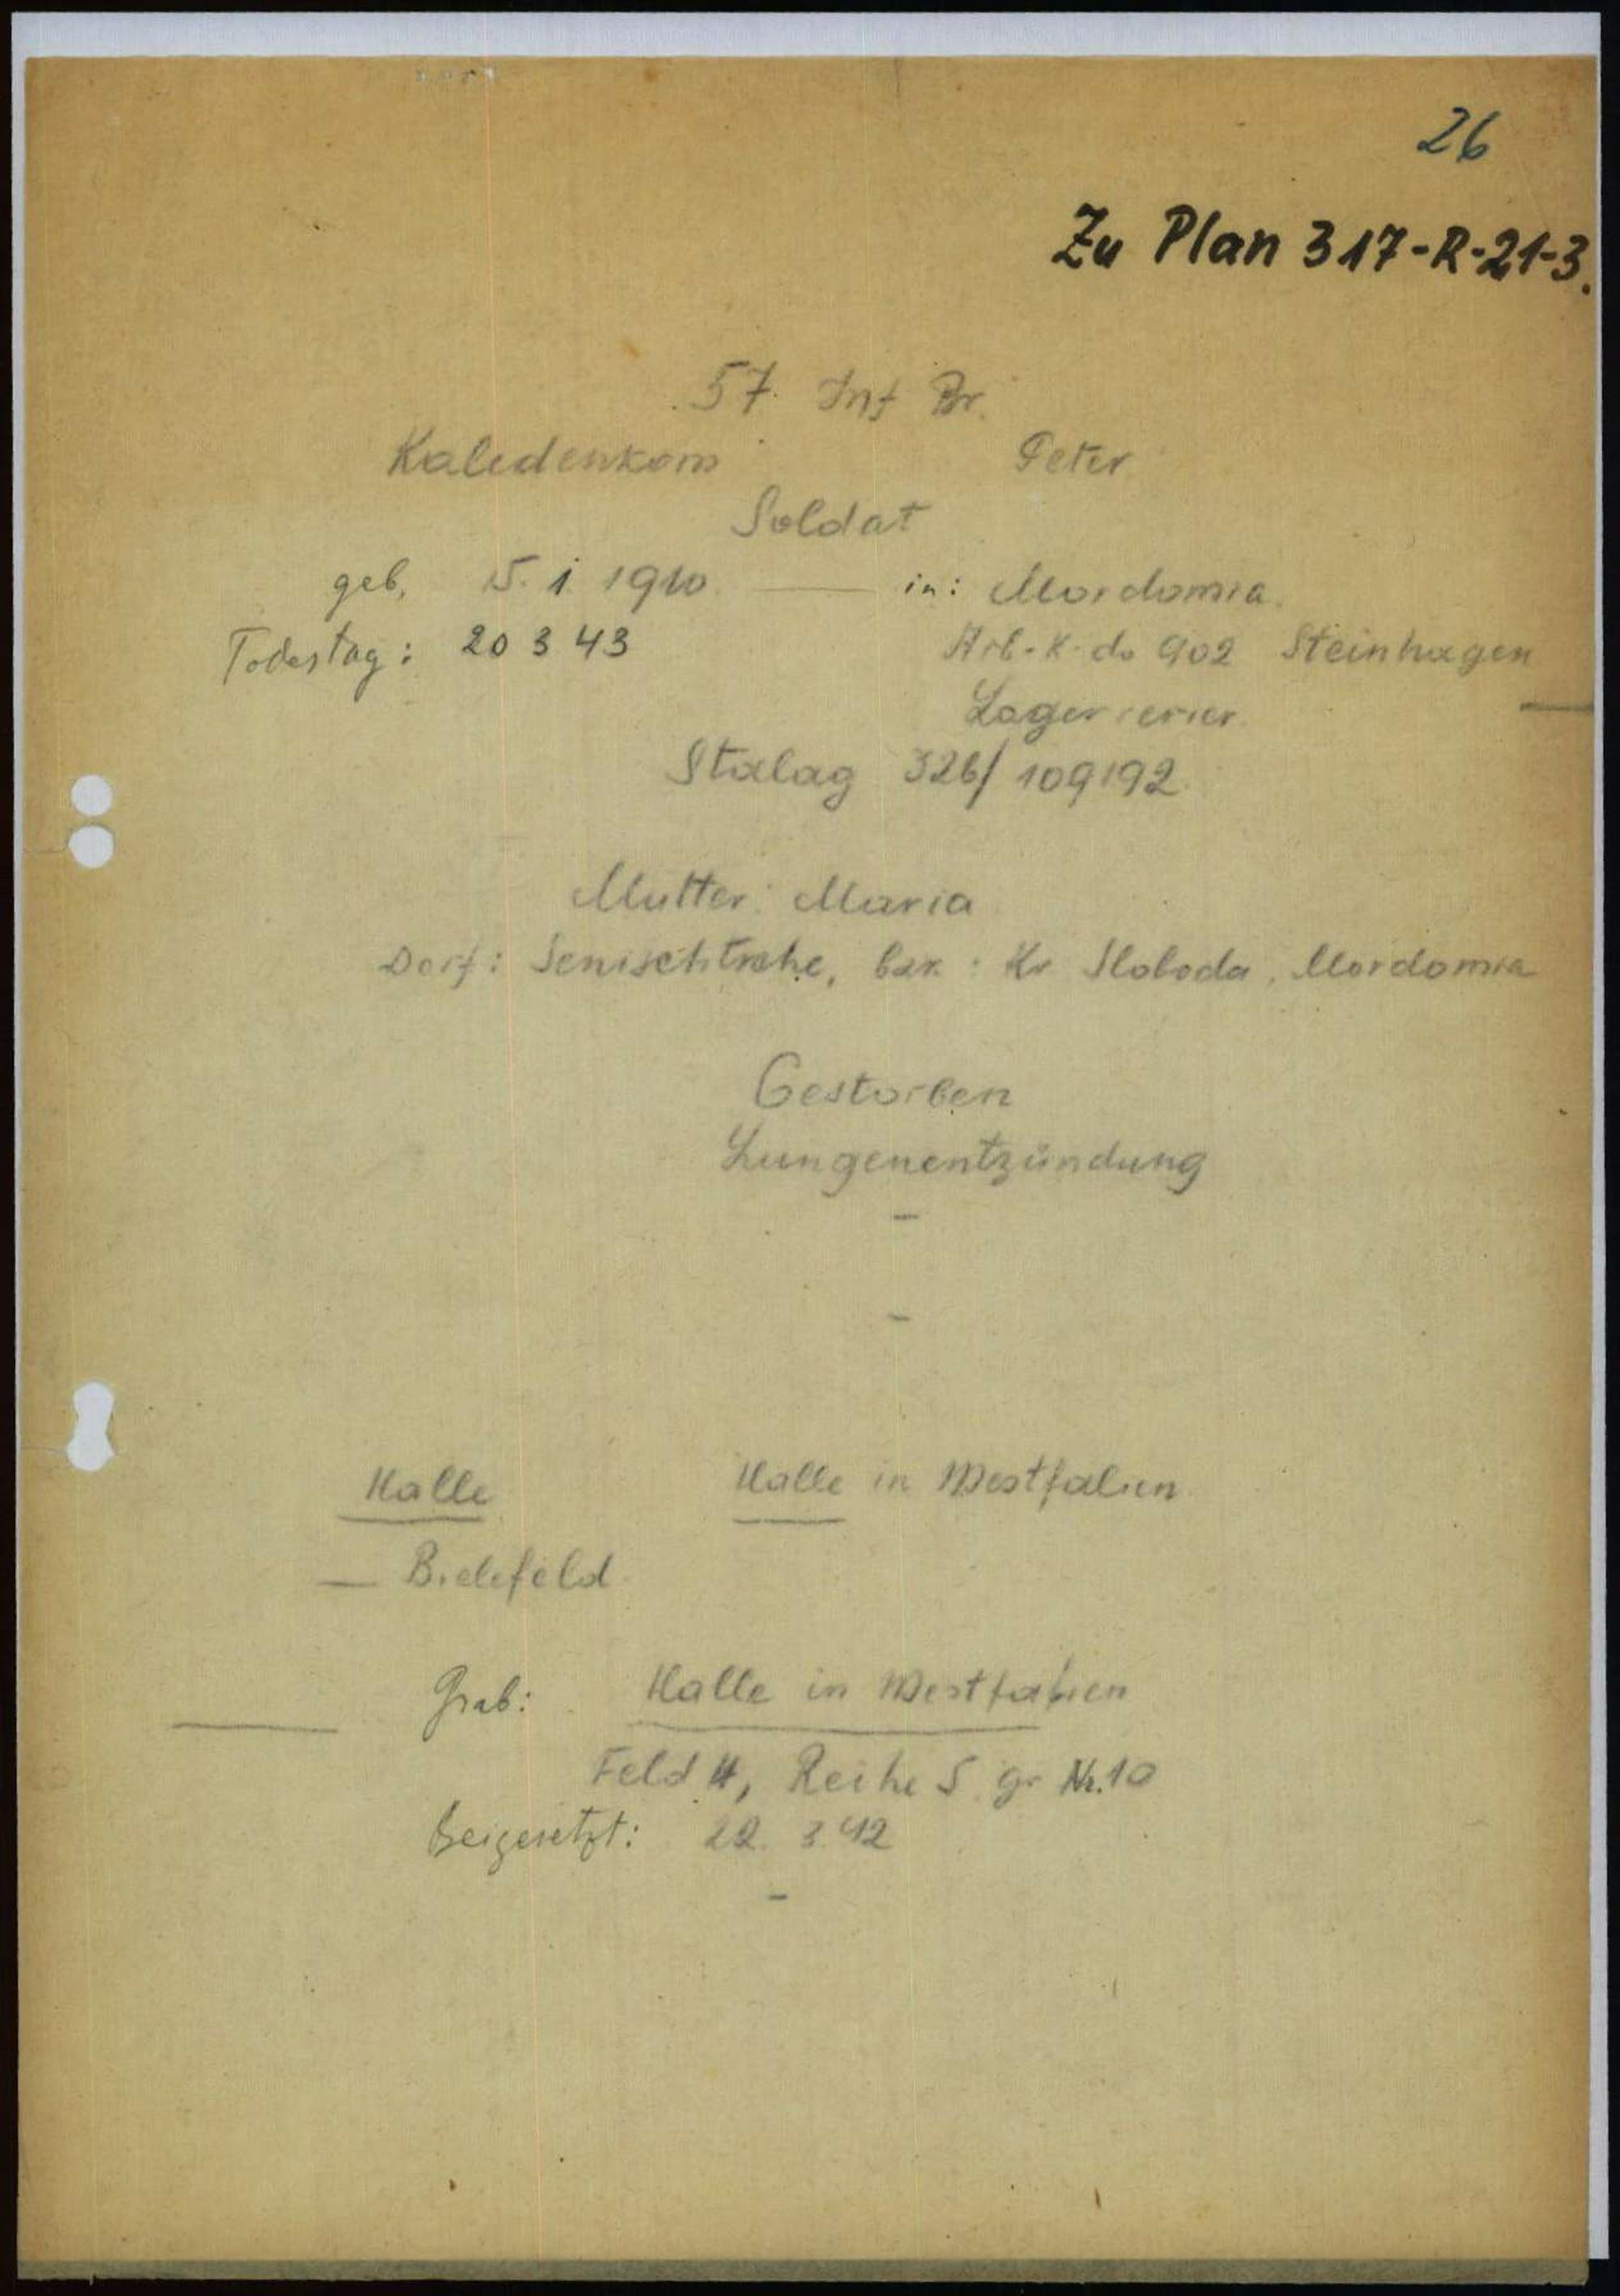 26
Zu Plan 317-R-21-3.
57. Inf Br.
Kaledenkom Peter
Soldat
geb. 15. 1 1910 in: Mordomia.
Todestag: 20 3 43 Arb.-K.do 902 Steinhagen
Lagerrevier
Stalag 326/ 109192
Mutter: Maria
Dorf: bzr.: Kr. Sloboda, Mordomia
Gestorben
Lungenentzündung
Halle Halle in Westfalien
Bielefeld
Grab: Halle in Westfalien
Feld 4, Reihe 5 gr Nr. 10
Beigesetzt: 22. 3. 42